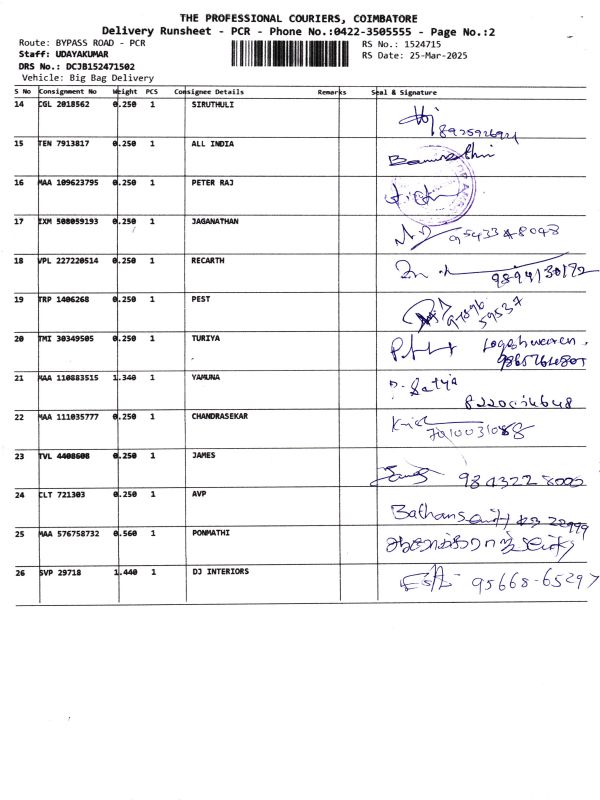 THE PROFESSIONAL COURIERS, COIMBATORE
Delivery Runsheet - PCR - Phone No.:0422-3505555 - Page No.:2
Route: BYPASS ROAD - PCR
RS No.: 1524715
Staff: UDAYAKUMAR
RS Date: 25-Mar-2025
DRS No.: DCJB152471502
Vehicle: Big Bag Delivery
S No Consignment No Weight PCS Consignee Details Remarks Seal & Signature
14 CGL 2018562 0.250 1 SIRUTHULI
15 TEN 7913817 0.250 1 ALL INDIA
16 MAA 109623795 0.250 1 PETER RAJ
17 IXM 508059193 0.250 1 JAGANATHAN
18 VPL 227220514 0.250 1 RECARTH 9894130172
19 TRP 1406268 0.250 1 PEST
20 TMI 30349505 0.250 1 TURIYA
21 MAA 110883515 1.340 1 YAMUNA
22 MAA 111035777 0.250 1 CHANDRASEKAR
23 TVL 4408608 0.250 1 JAMES
24 CLT 721303 0.250 1 AVP
25 MAA 576758732 0.560 1 PONMATHI
26 SVP 29718 1.440 1 DJ INTERIORS 95668-65297